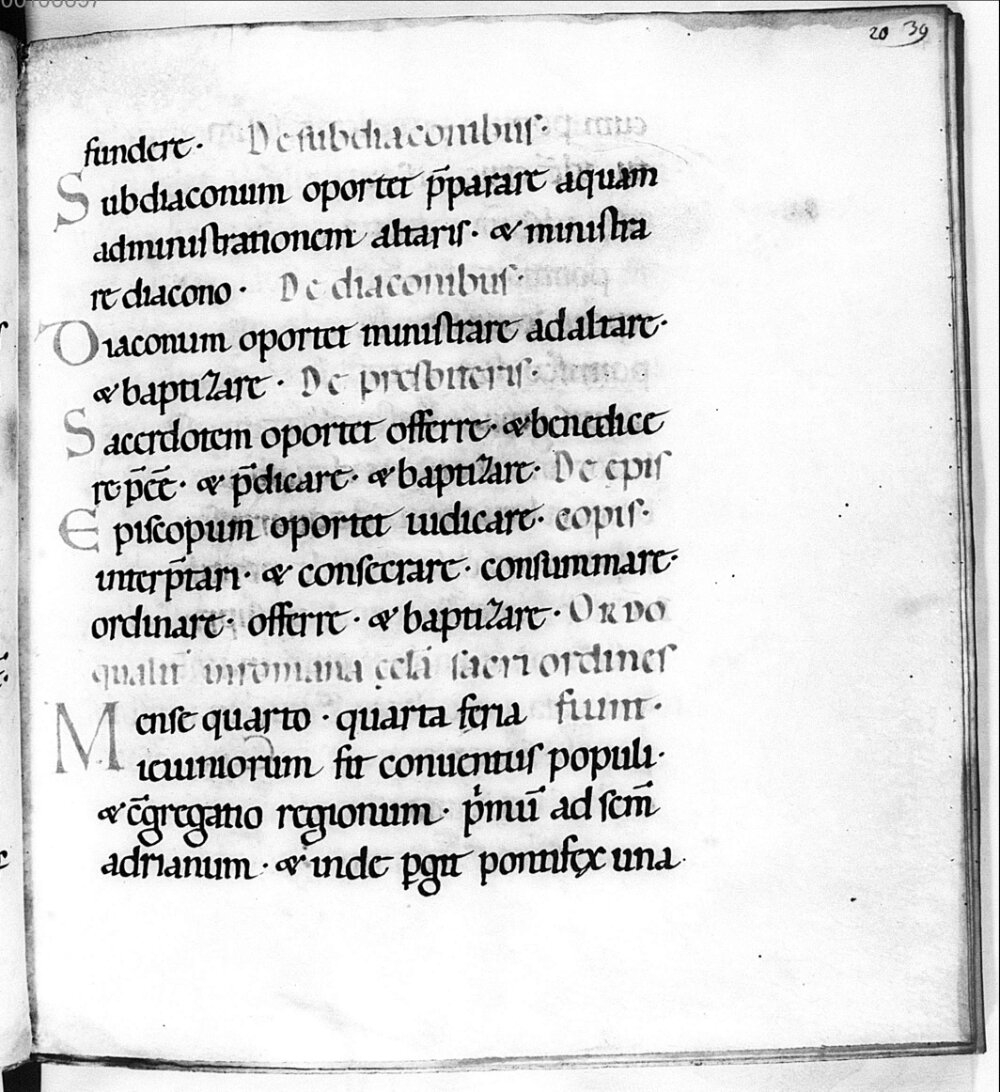 20 39
fundere· De subdiaconibus·
Subdiaconum oportet p̄parare aquam
administrationem altaris· & ministra
re diacono· De diaconibus·
Diaconum oportet ministrare ad altare·
& baptizare· De presbiteris·
Sacerdotem oportet offerre· & benedice
re· p̄cē· & p̄dicare· & baptizare· De epis
Episcopum oportet iudicare· copis·
interp̄tari· & consecrare· consummare·
ordinare· offerre· & baptizare· ORDO
qualit̄ in romana ęccła sacri ordines
Mense quarto· quarta feria fiunt·
ieiuniorum fit conuentus populi·
& c̄gregatio regionum· p̍mū ad sc̄m
adrianum· & inde ꝑgit pontifex una